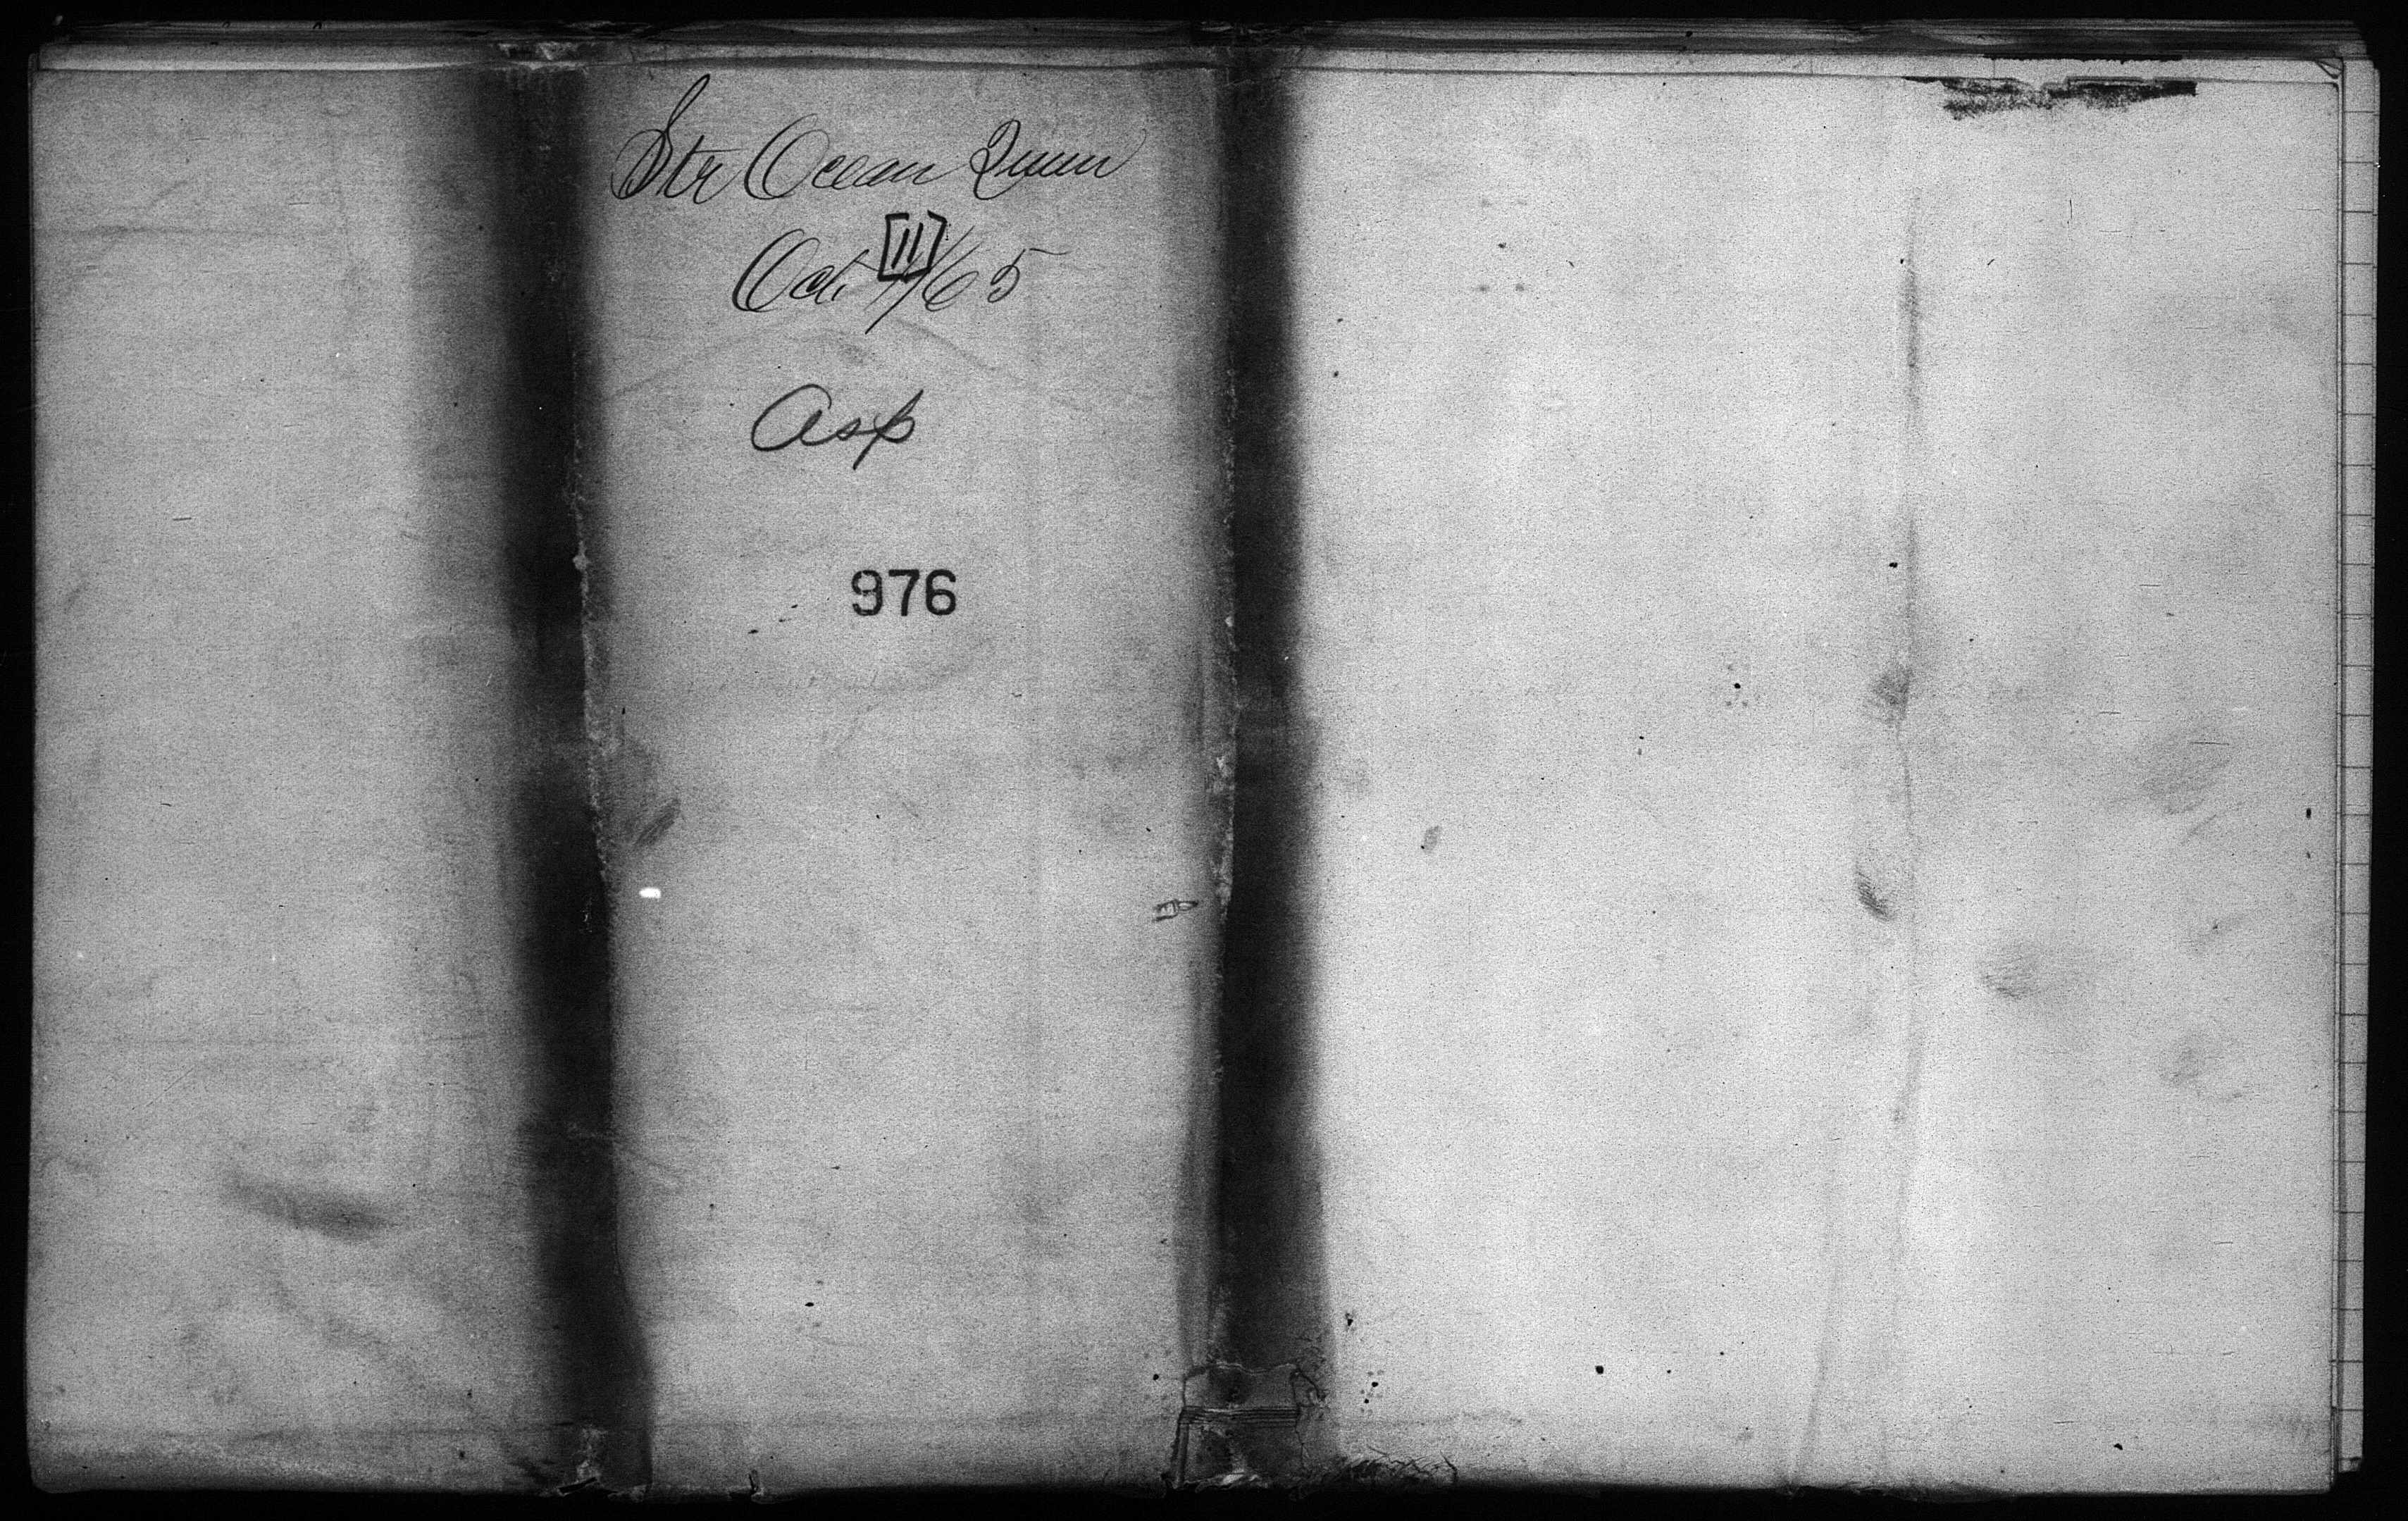 Str Ocean Queen
Oct 11/65
[11]
Asp
976